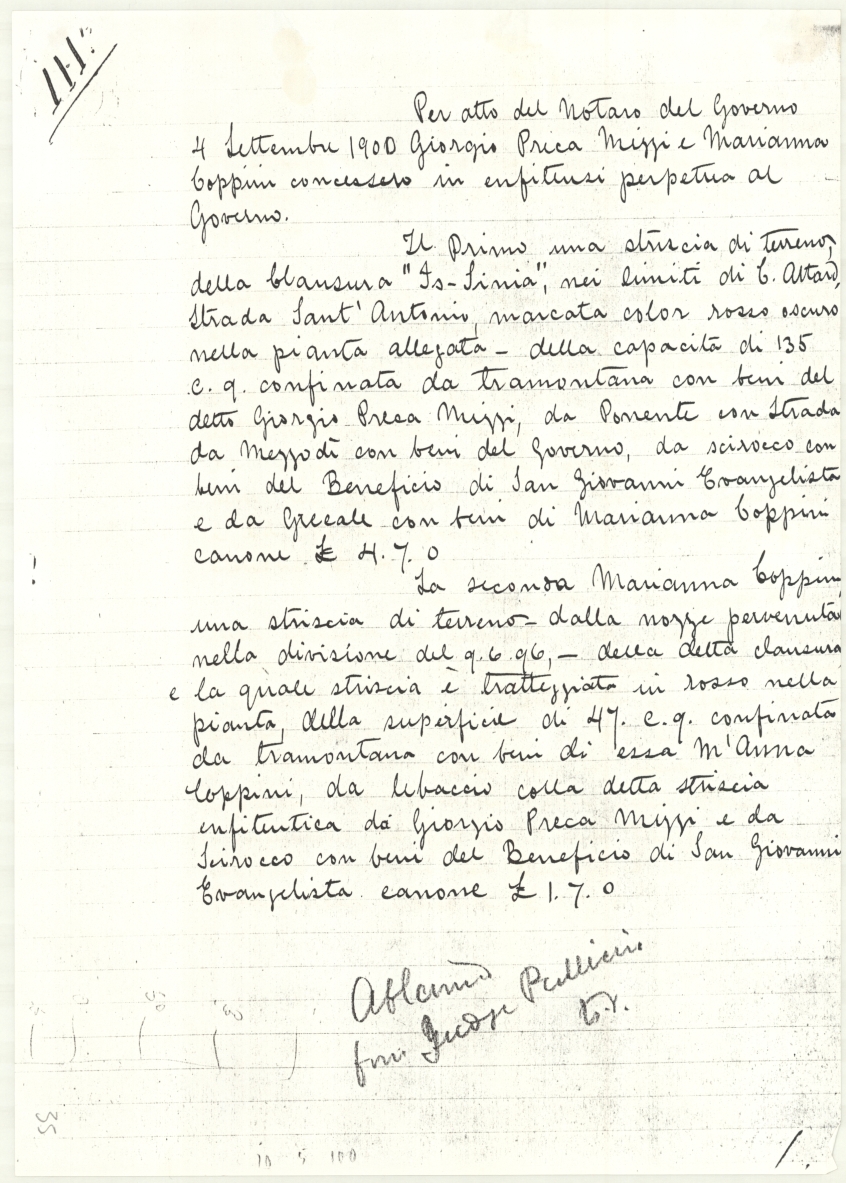 111.
Per atto del Notaro del Governo
4 Settembre 1900 Giorgio Preca Mizzi e Marianna
Coppini concessero in enfiteusi perpetua al
Governo.
Il Primo una striscia di terreno,
della Clausura "Is-Sinia", nei limiti di C. Attard,
Strada Sant' Antonio, marcata color rosso oscuro
nella pianta allegata - della capacità di 135
c. q. confinata da tramontana con beni del
detto Giorgio Preca Mizzi, da Ponente con Strada
da Mezzodì con beni del Governo, da scirocco con
beni del Beneficio di San Giovanni Evangelista
e da Grecale con beni di Marianna Coppini
canone £ 4. 7. 0
La seconda Marianna Coppini
una striscia di terreno - dalla pervenuta
nella divisione del 9. 6. 96, - della detta clausura
e la quale striscia è tratteggiata in rosso nella
pianta, della superficie di 47. c. q. confinata
da tramontana con beni di essa M'Anna
Coppini, da lebaccio colla detta striscia
enfiteutica da Giorgio Preca Mizzi e da
Scirocco con beni del Beneficio di San Giovanni
Evangelista canone £ 1. 7. 0
Judge
35
10 5 100
1.